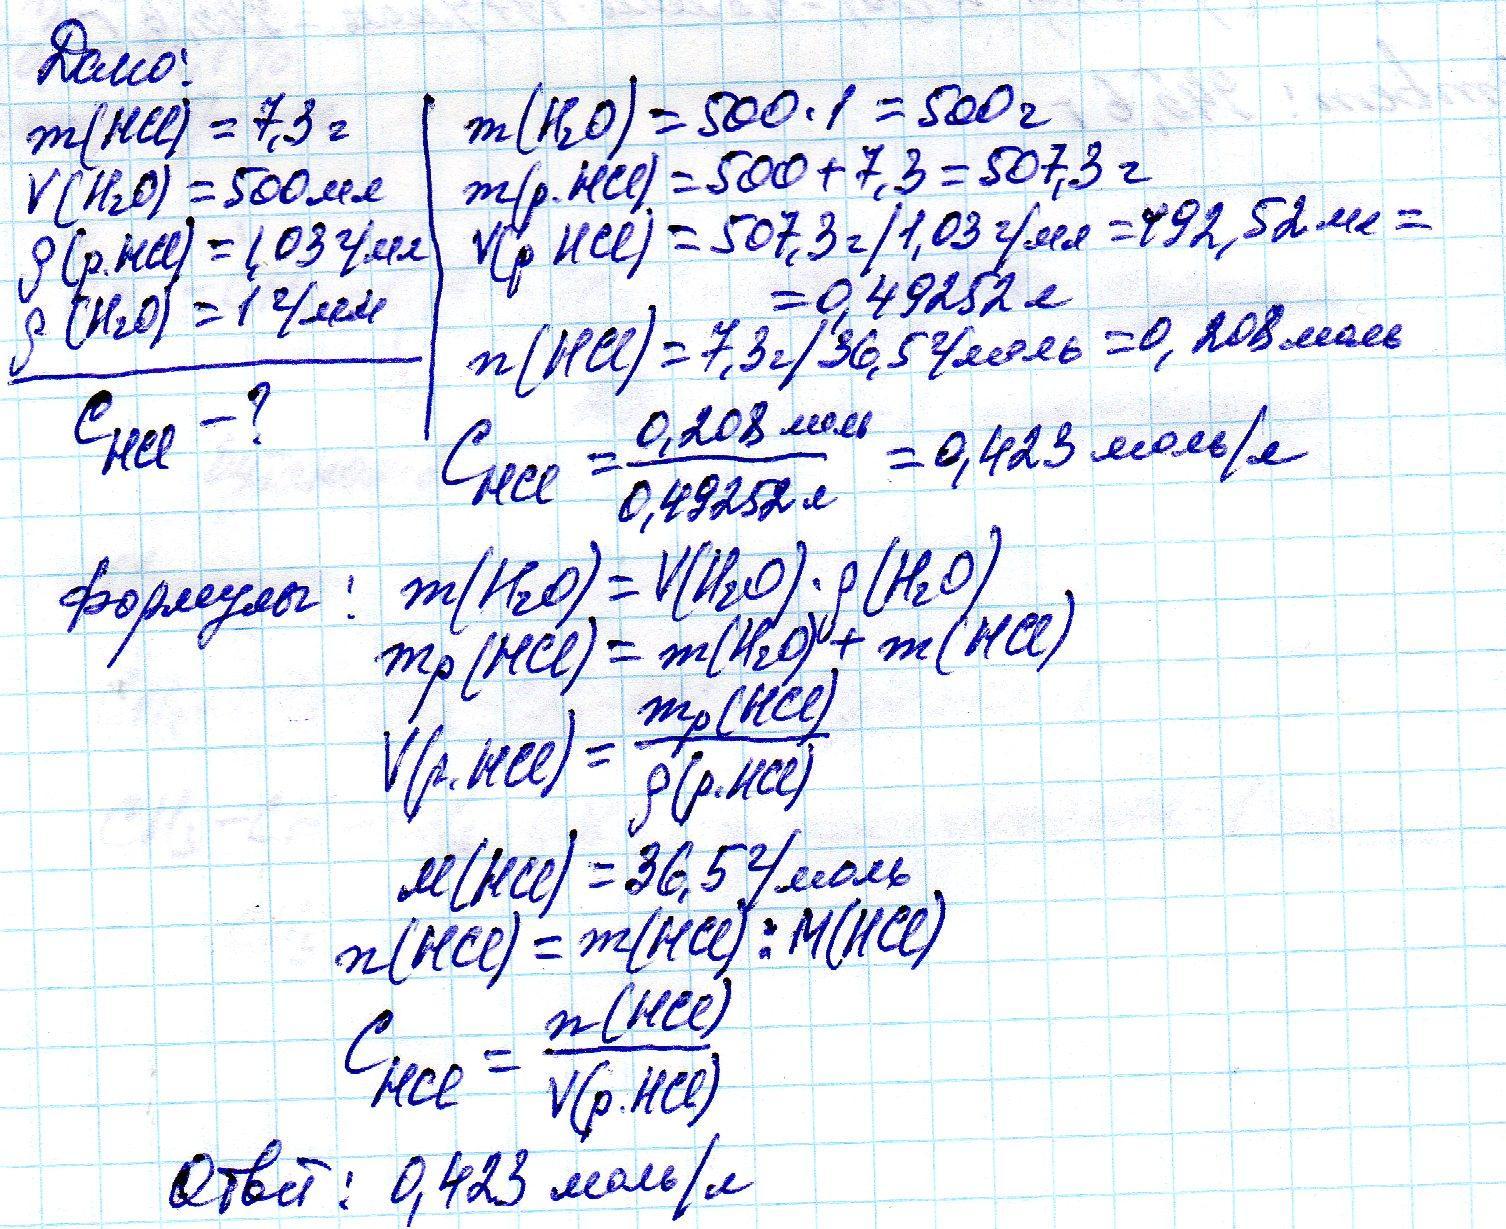 Дано:
m(HCl) = 7,3 г
V(H₂O) = 500 мл
ρ(р.HCl) = 1,03 г/мл
ρ(H₂O) = 1 г/мл
C HCl – ?
m(H₂O) = 500·1 = 500 г
m(р.HCl) = 500 + 7,3 = 507,3 г
V(р HCl) = 507,3 г/1,03 г/мл = 492,52 мл =
= 0,49252 л
n(HCl) = 7,3 г/36,5 г/моль = 0,208 моль
C HCl = 0,208 моль / 0,49252 л = 0,423 моль/л
Формулы: m(H₂O) = V(H₂O)·ρ(H₂O)
mр(HCl) = m(H₂O) + m(HCl)
V(р.HCl) = mр(HCl) / ρ(р.HCl)
M(HCl) = 36,5 г/моль
n(HCl) = m(HCl) : M(HCl)
C HCl = n(HCl) / V(р.HCl)
Ответ: 0,423 моль/л